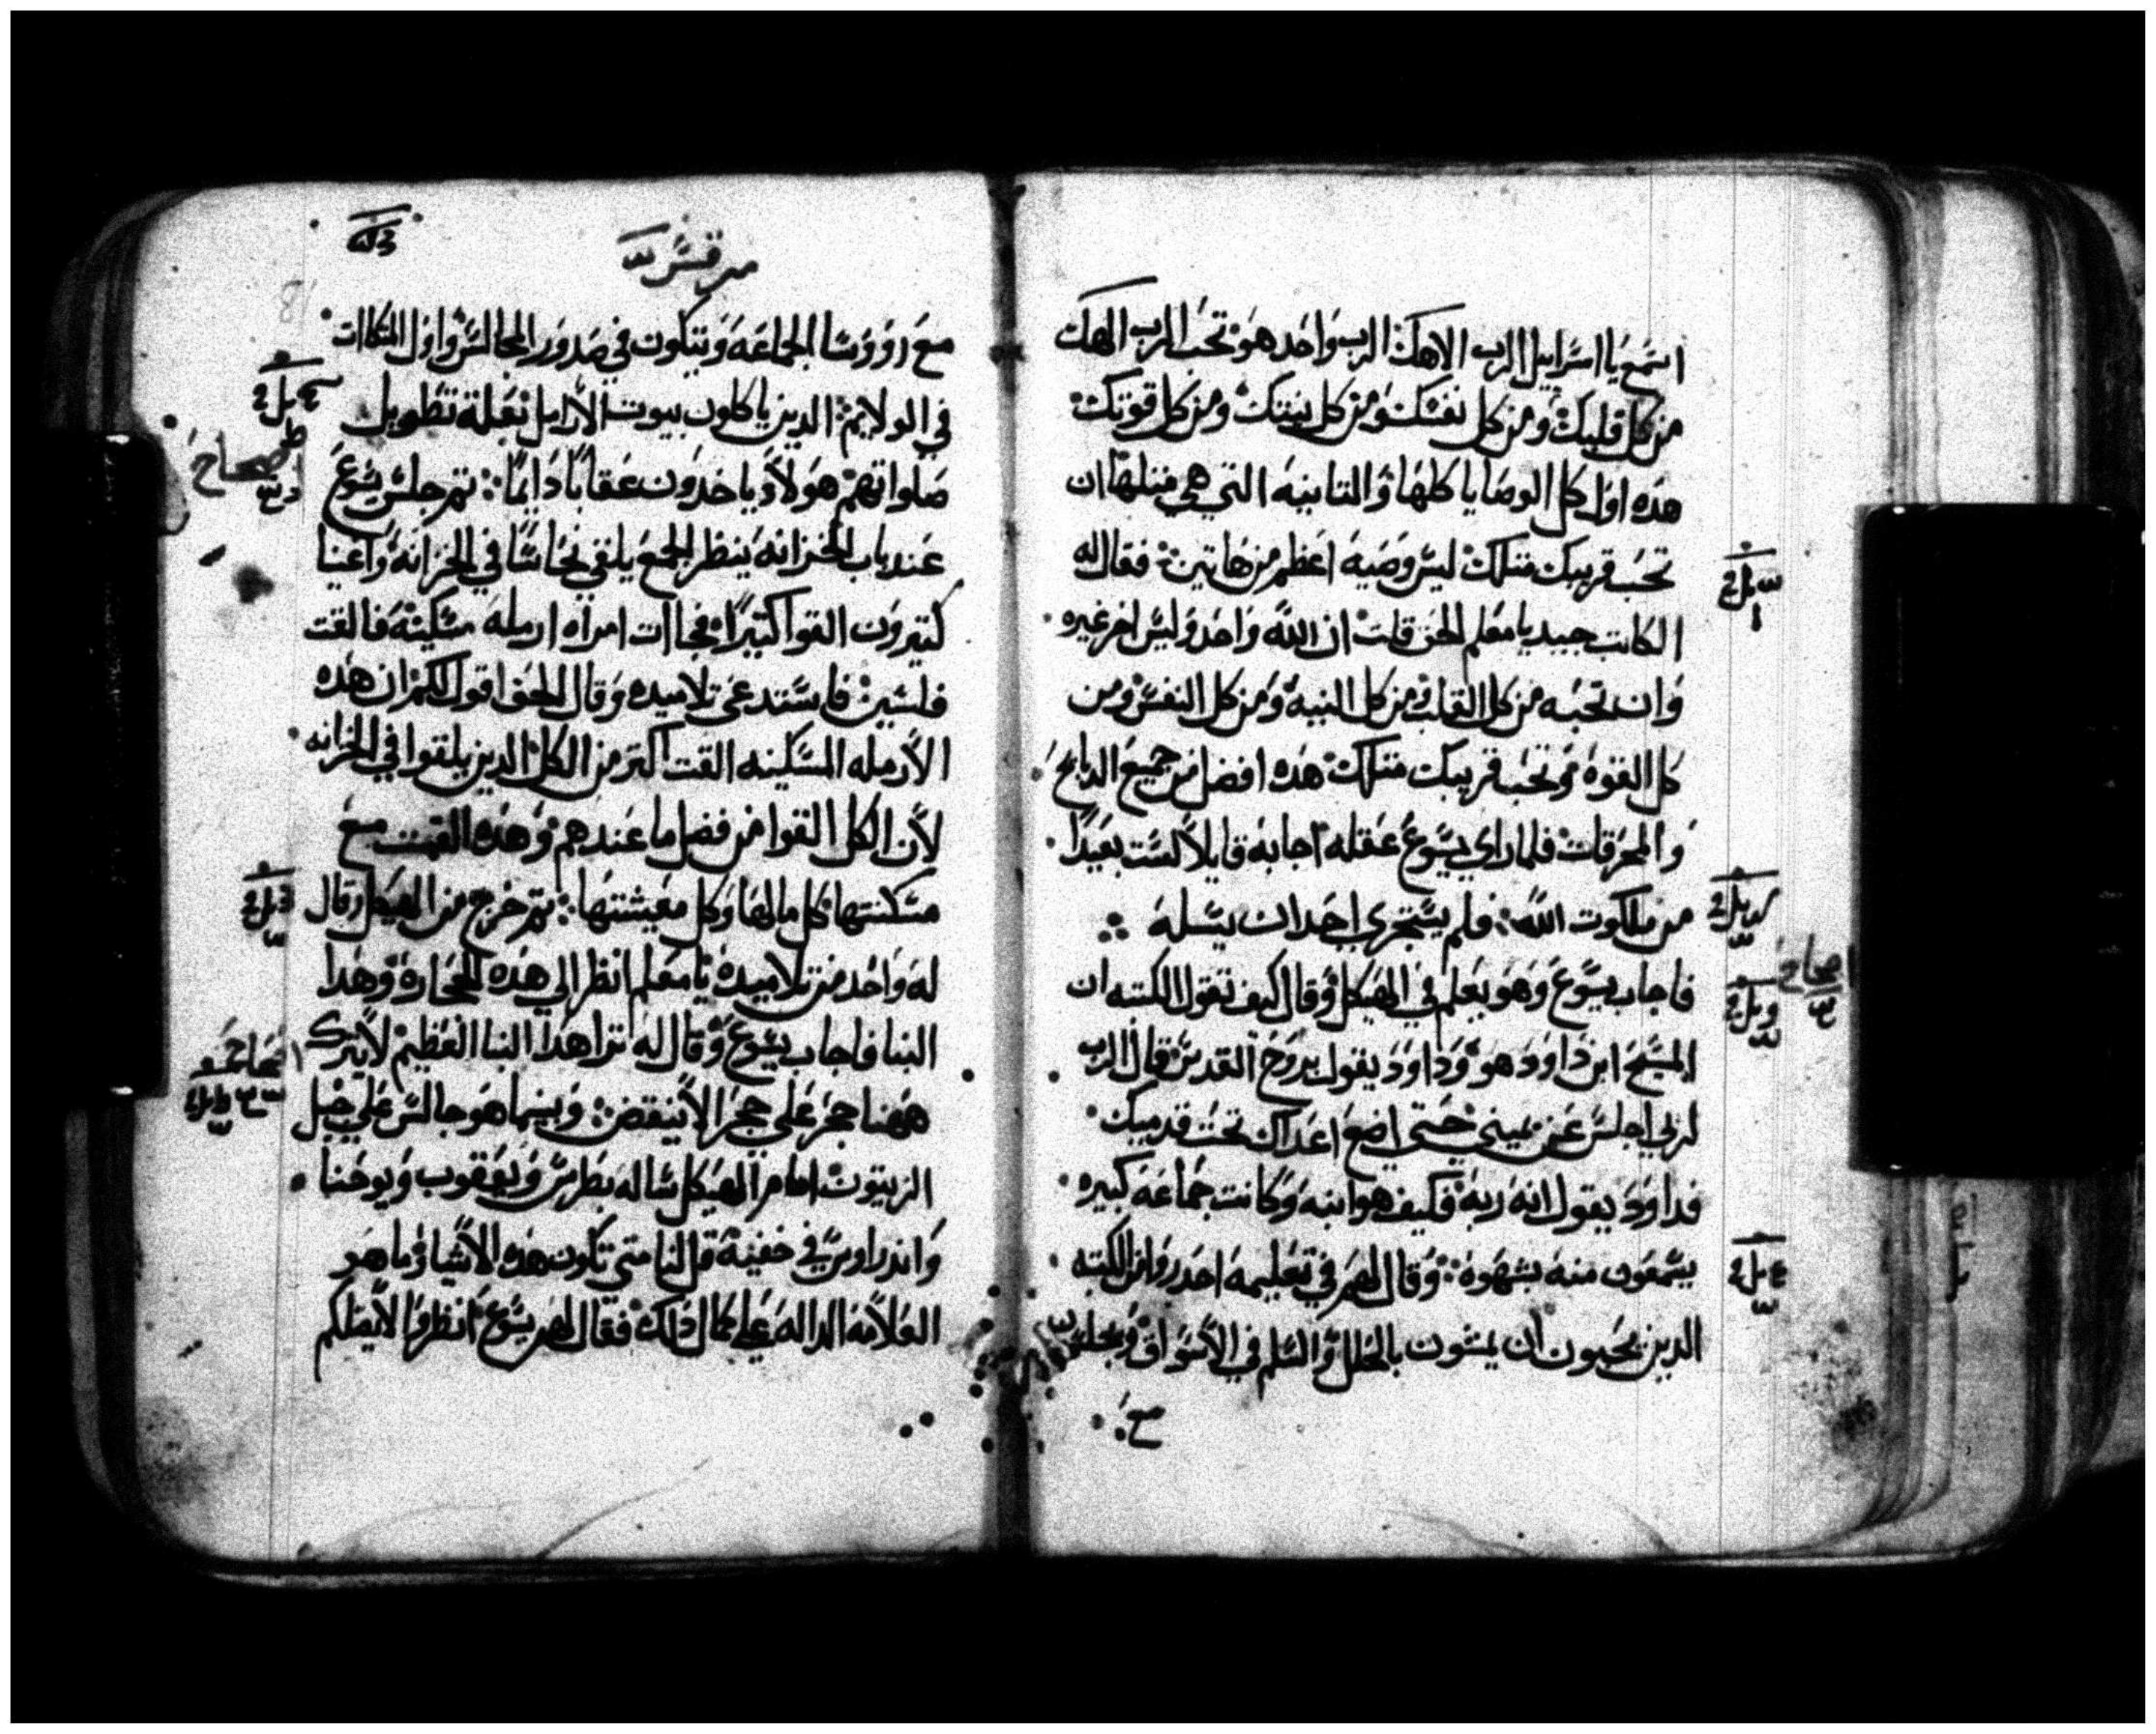 استمع يا اسراييل الرب الاهك الرب واحد هو تحب الرب الهك
من كل قلبك ومن كل نفسك ومن كل نيتك ومن كل قوتك
هده اول كل الوصايا كلها والتانيه التي هي متلها ان
تحب قريبك متلك ليس وصيه اعظم من هاتين فقال له
الكاتب جيد يا معلم الحق قلت ان الله واحد وليس اخر غيره
وان تحبه من كل القلب ومن كل النيه ومن كل النفس ومن
كل القوه وتحب قريبك متلك هده افضل من جميع الدبايح
والمحرقات فلما راي يسوع عقله اجابه قايلا لست بعيدا
من ملكوت الله فلم يستجري احد ان يسله
فاجاب يسوع وهو يعلم في الهيكل وقال كيف تقول الكتبه ان
المسيح ابن داوود هو وداوود يقول بروح القدس قال الرب
لربي اجلس عن يميني حتى اضع اعداك تحت قدميك
فداوود يقول انه ربه فكيف هو ابنه وكانت جماعه كبيره
يسمعون منه بشهوه وقال لهم في تعليمه احدروا من الكتبه
الدين يحبون ان يمشون بالحلل والسلم في الاسواق ويجلس
مع
مرقس
مع رووسا الجماعه ويتكون في صدور المجالس واول المتكاات
في الولايم الدين ياكلون بيوت الارامل بعلة تطويل
صلواتهم هولاد ياخدون عقابا دايما تم جلس يسوع
عند باب الخزانه ينظر الجمع يلقي نحاسا في الخزانه واغنيا
كتيرون القوا كتيرا فجاات امراه ارمله مسكينه فالقت
فلسين فاستدعى تلاميده وقال الحق اقول لكم ان هده
الارمله المسكينه القت اكتر من الكل الدين يلقوا في الخزانه
لان الكل القوا من فضل ما عندهم وهده القت مع
مسكنتها كل مالها وكل معيشتها تم خرج من الهيكل وقال
له واحد من تلاميده يا معلم انظر الي هده الحجاره وهدا
البنا فاجاب يسوع وقال له ترا هدا البنا العظيم لا يترك
ههنا حجر علي حجر الا ينقض وبينما هو جالس علي جبل
الزيتون امام الهيكل ساله بطرس ويعقوب ويوحنا
واندراوس في خفيه قل لنا متي تكون هده الاشيا وما هو
العلامه الداله علي كمال دلك فقال لهم يسوع انظروا لا يضلكم